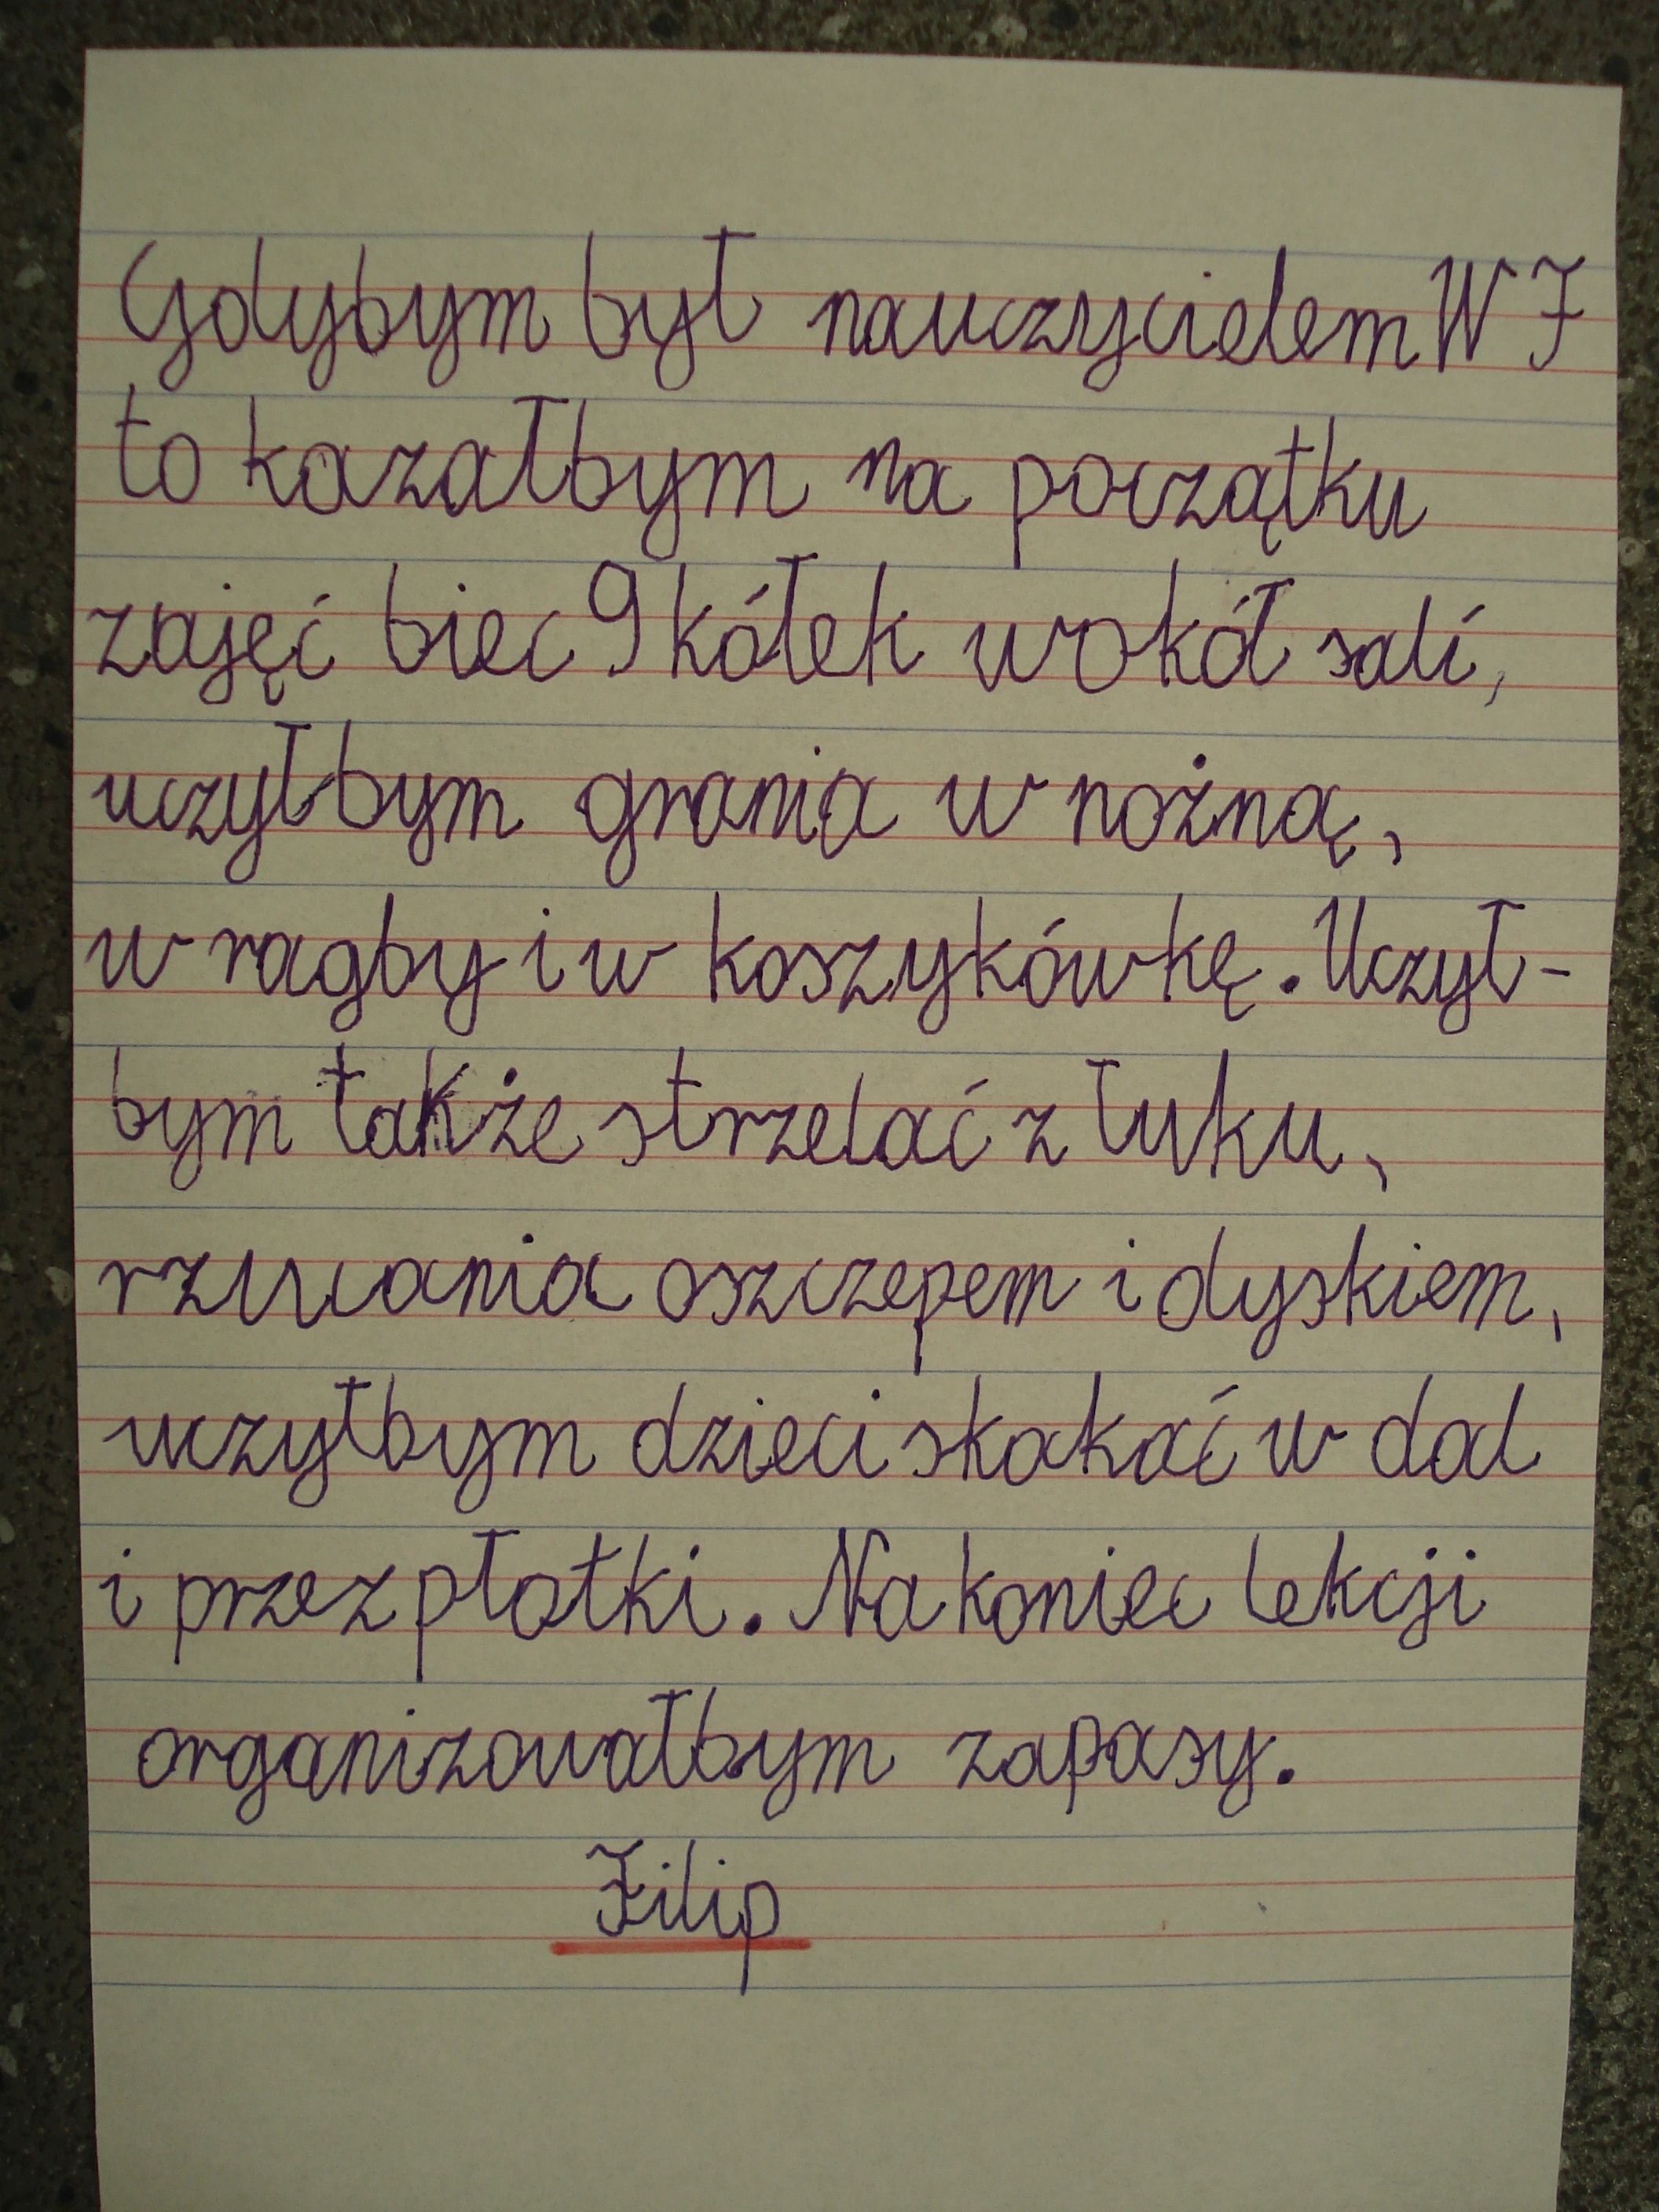 Gdybym był nauczycielem WF
to kazałbym na początku
zajęć biec 9 kółek wokół sali,
uczyłbym grania w nożną,
w ragby i w koszykówkę. Uczył-
bym także strzelać z łuku,
rzucania oszczepem i dyskiem,
uczyłbym dzieci skakać w dal
i przez płotki. Na koniec lekcji
organizowałbym zapasy.
Filip